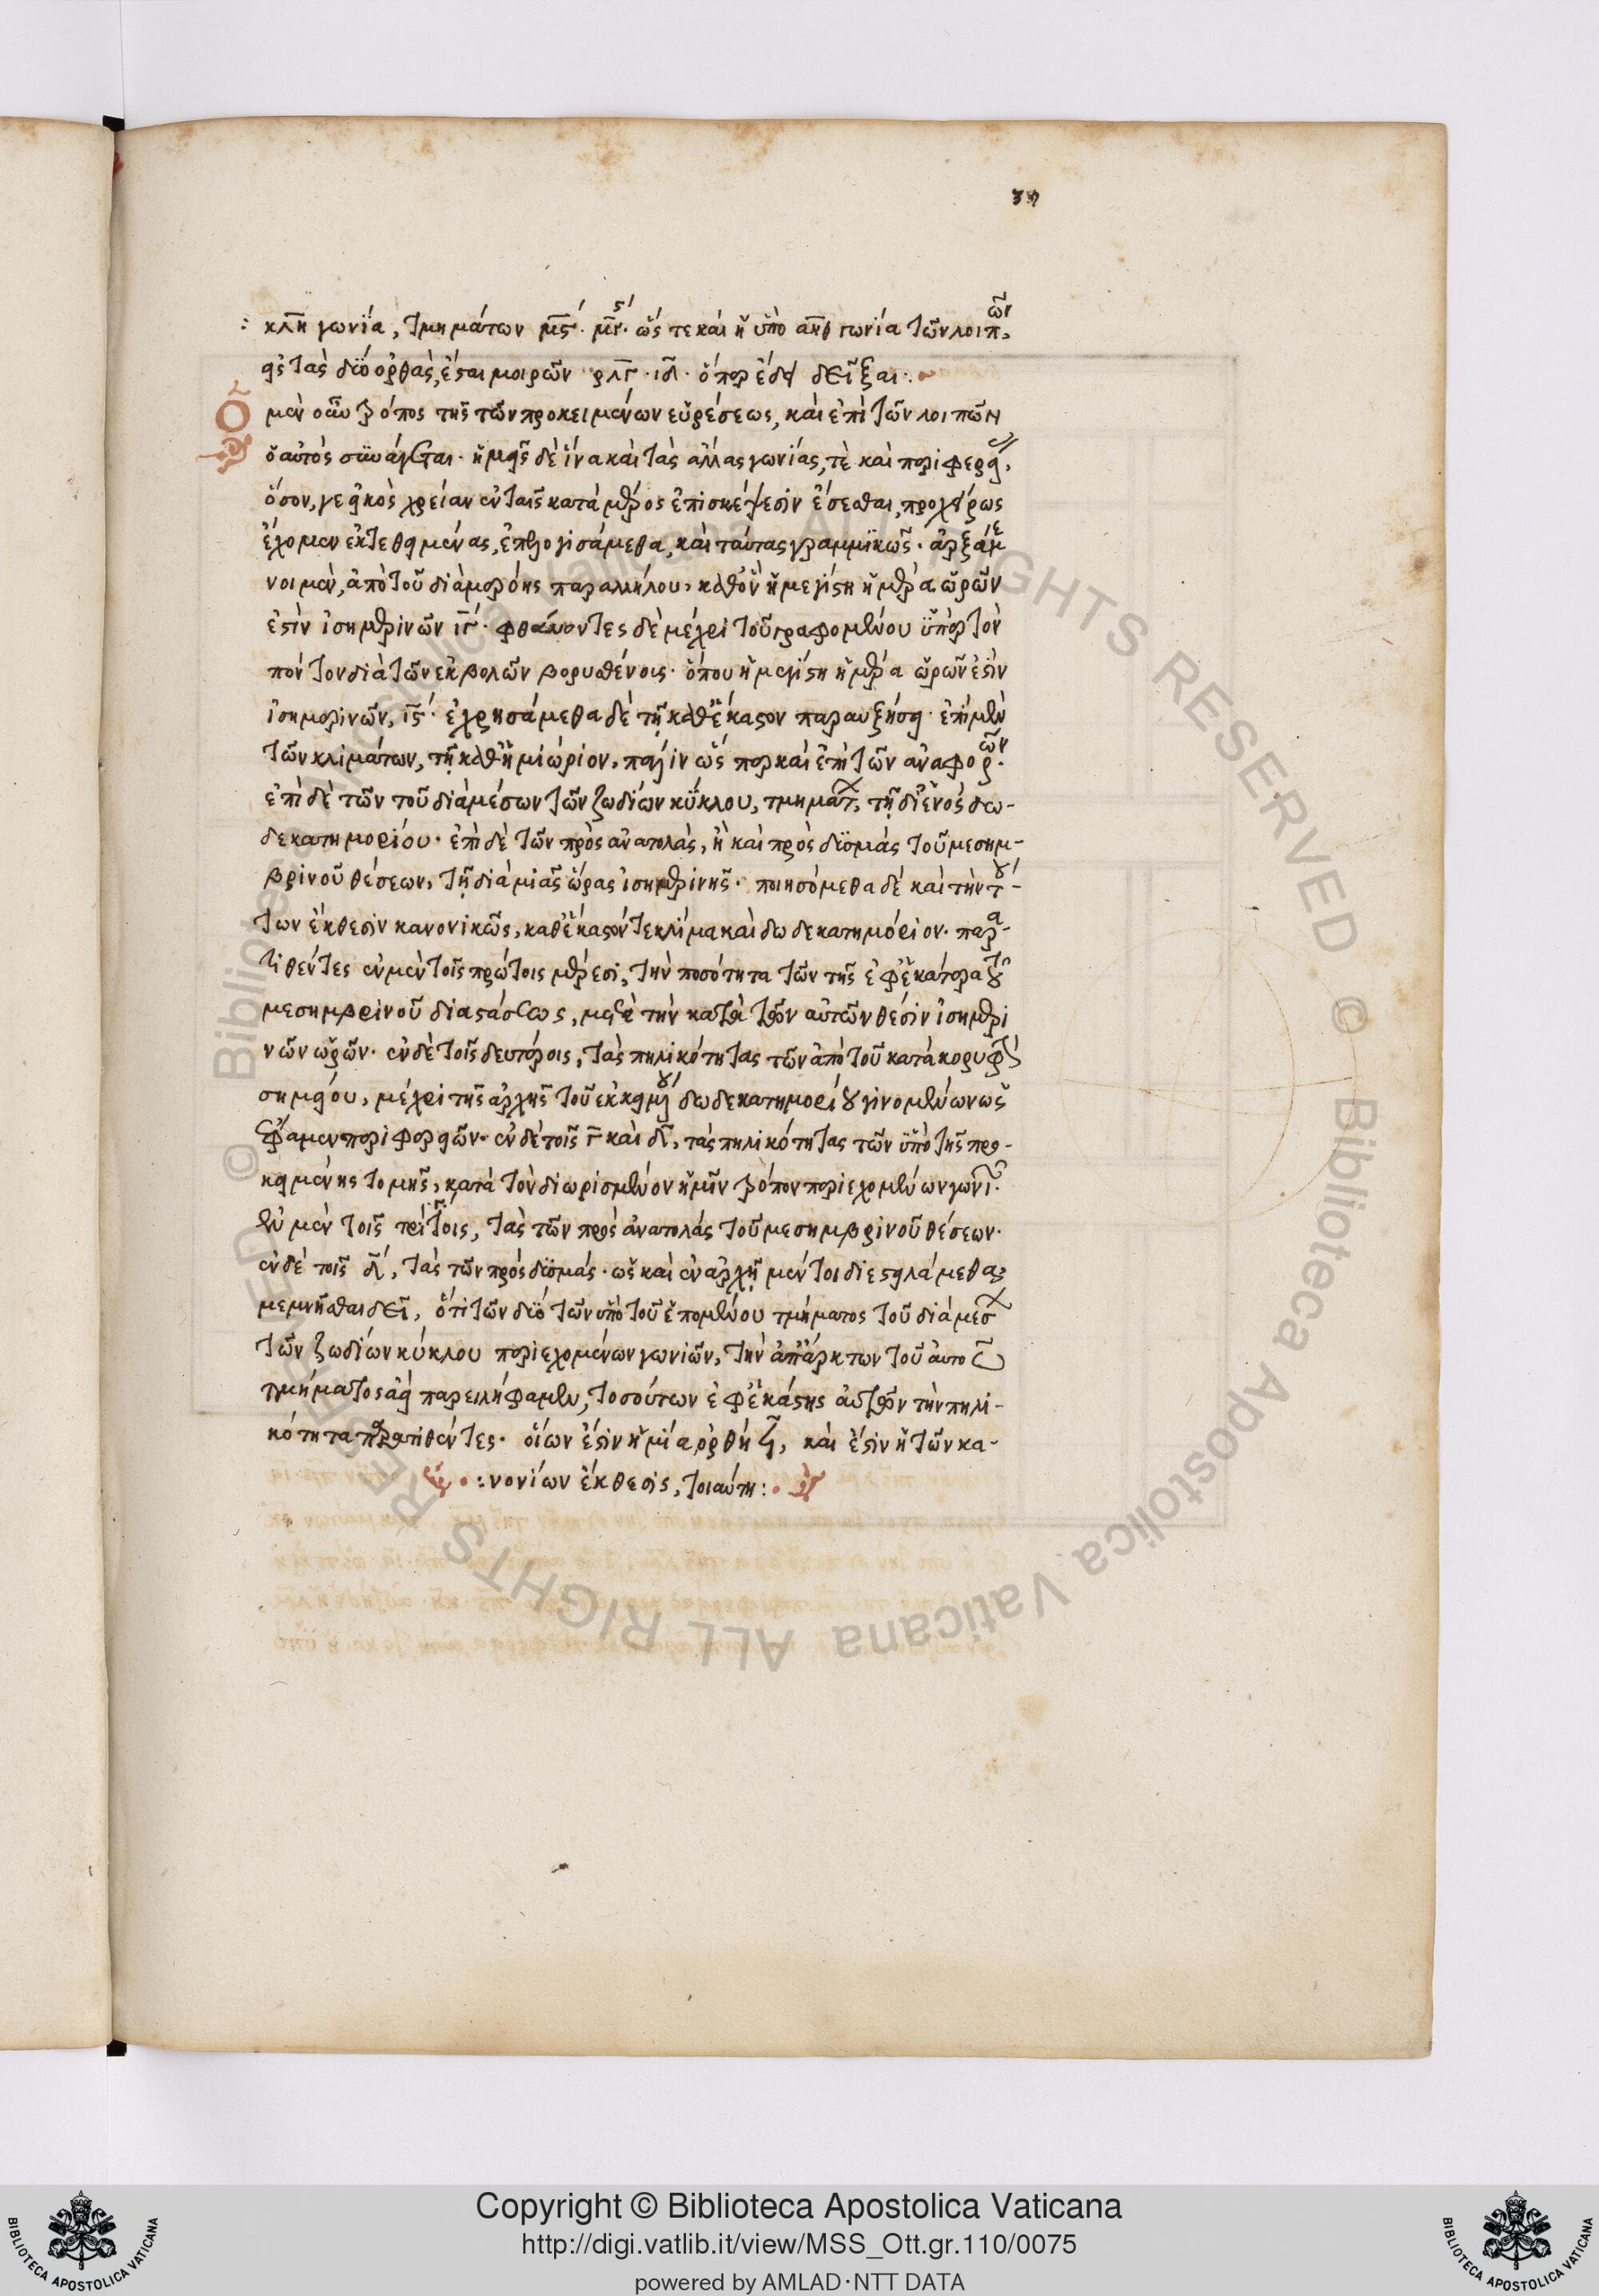 κλη γωνία, τμημάτων μϛ μϛ. ὥς τε καὶ ἡ ὑπὸ αηθ γωνία τῶν λοιπῶν
εἰς τὰς δύο ὀρθὰς, ἔσται μοιρῶν ρλγ ιδ. ὅπερ ἔδει δεῖξαι.
Ὁ μὲν οὖν τρόπος τῆς τῶν προκειμένων εὑρέσεως, καὶ ἐπὶ τῶν λοιπῶν
ὁ αὐτὸς συνάγεται. ἡμεῖς δὲ ἵνα καὶ τὰς ἄλλας γωνίας, τὲ καὶ περιφερείας,
ὅσον, γε εἰκὸς χρείαν ἐν ταῖς κατὰ μέρος ἐπισκέψεσιν ἔσεσθαι, προχείρως
ἔχομεν ἐκτεθειμένας, ἐπελογισάμεθα, καὶ ταύτας γραμμικῶς. ἀρξάμε
νοι μὲν, ἀπὸ τοῦ διὰ μερόης παραλλήλου, καθ' ὃν ἡ μεγίστη ἡμέρα ὡρῶν
ἐστὶν ἰσημερινῶν ιγ. φθάνοντες δὲ μέχρι τοῦ γραφομένου ὑπὲρ τὸν
πόντον διὰ τῶν ἐκβολῶν βορυσθένοις. ὅπου ἡ μεγίστη ἡμέρα ὡρῶν ἐστὶν
ἰσημερινῶν, ιϛ. ἐχρησάμεθα δὲ τῇ καθ' ἕκαστον παραυξήσει. ἐπὶ μὲν
τῶν κλιμάτων, τῇ καθ' ἡμιώριον, πάλιν ὥς περ καὶ ἐπὶ τῶν ἀναφορῶν.
ἐπὶ δὲ τῶν τοῦ διὰ μέσων τῶν ζωδίων κύκλου, τμημάτων, τῇ δι' ἑνὸς δω-
δεκατημορίου. ἐπὶ δὲ τῶν πρὸς ἀνατολὰς, ἢ καὶ πρὸς δυσμὰς τοῦ μεσημ-
βρινοῦ θέσεων, τῇ διὰ μιᾶς ὥρας ἰσημερινῆς. ποιησόμεθα δὲ καὶ τὴν τού-
των ἔκθεσιν κανονικῶς, καθ' ἕκαστόν τε κλίμα καὶ δωδεκατημόριον. παρα-
τιθέντες ἐν μὲν τοῖς πρώτοις μέρεσι, τὴν ποσότητα τῶν τῆς ἐφ' ἑκάτερα τοῦ
μεσημβρινοῦ διαστάσεως, μετὰ τὴν κατὰ τῶν αὐτῶν θέσιν ἰσημερι
νῶν ὡρῶν. ἐν δὲ τοῖς δευτέροις, τὰς πηλικότητας τῶν ἀπὸ τοῦ κατὰ κορυφὴν
σημείου, μέχρι τῆς ἀρχῆς τοῦ ἐκκειμένου δωδεκατημορίου γινομένων ὡς
ἔφαμεν περιφερειῶν. ἐν δὲ τοῖς γ καὶ δ, τὰς πηλικότητας τῶν ὑπὸ τῆς προ-
κειμένης τομῆς, κατὰ τὸν διωρισμένον ἡμῖν τρόπον περιεχομένων γωνιῶν.
ἐν μὲν τοῖς τρίτοις, τὰς τῶν πρὸς ἀνατολὰς τοῦ μεσημβρινοῦ θέσεων.
ἐν δὲ τοῖς δ, τὰς τῶν πρὸς δυσμάς. ὡς καὶ ἐν ἀρχῇ μέντοι διεστειλάμεθα,
μεμνῆσθαι δεῖ, ὅτι τῶν δύο τῶν ὑπὸ τοῦ ἑπομένου τμήματος τοῦ διὰ μέσων
τῶν ζωδίων κύκλου περιεχομένων γωνιῶν, τὴν ἀπ' ἄρκτων τοῦ αὐτοῦ
τμήματος ἀεὶ παρειλήφαμεν, τοσούτων ἐφ' ἑκάστης αὐτῶν τὴν πηλι-
κότητα παρατιθέντες. οἵων ἐστὶν ἡ μία ὀρθὴ ϟ, καὶ ἔστιν ἡ τῶν κα-
νονίων ἔκθεσις, τοιαύτη:
Copyright © Biblioteca Apostolica Vaticana
http://digi.vatlib.it/view/MSS_Ott.gr.110/0075
powered by AMLAD·NTT DATA
BIBLIOTECA APOSTOLICA VATICANA
BIBLIOTECA APOSTOLICA VATICANA
© Biblioteca Apostolica Vaticana ALL RIGHTS RESERVED © Biblioteca Apostolica Vaticana ALL RIGHTS RESERVED